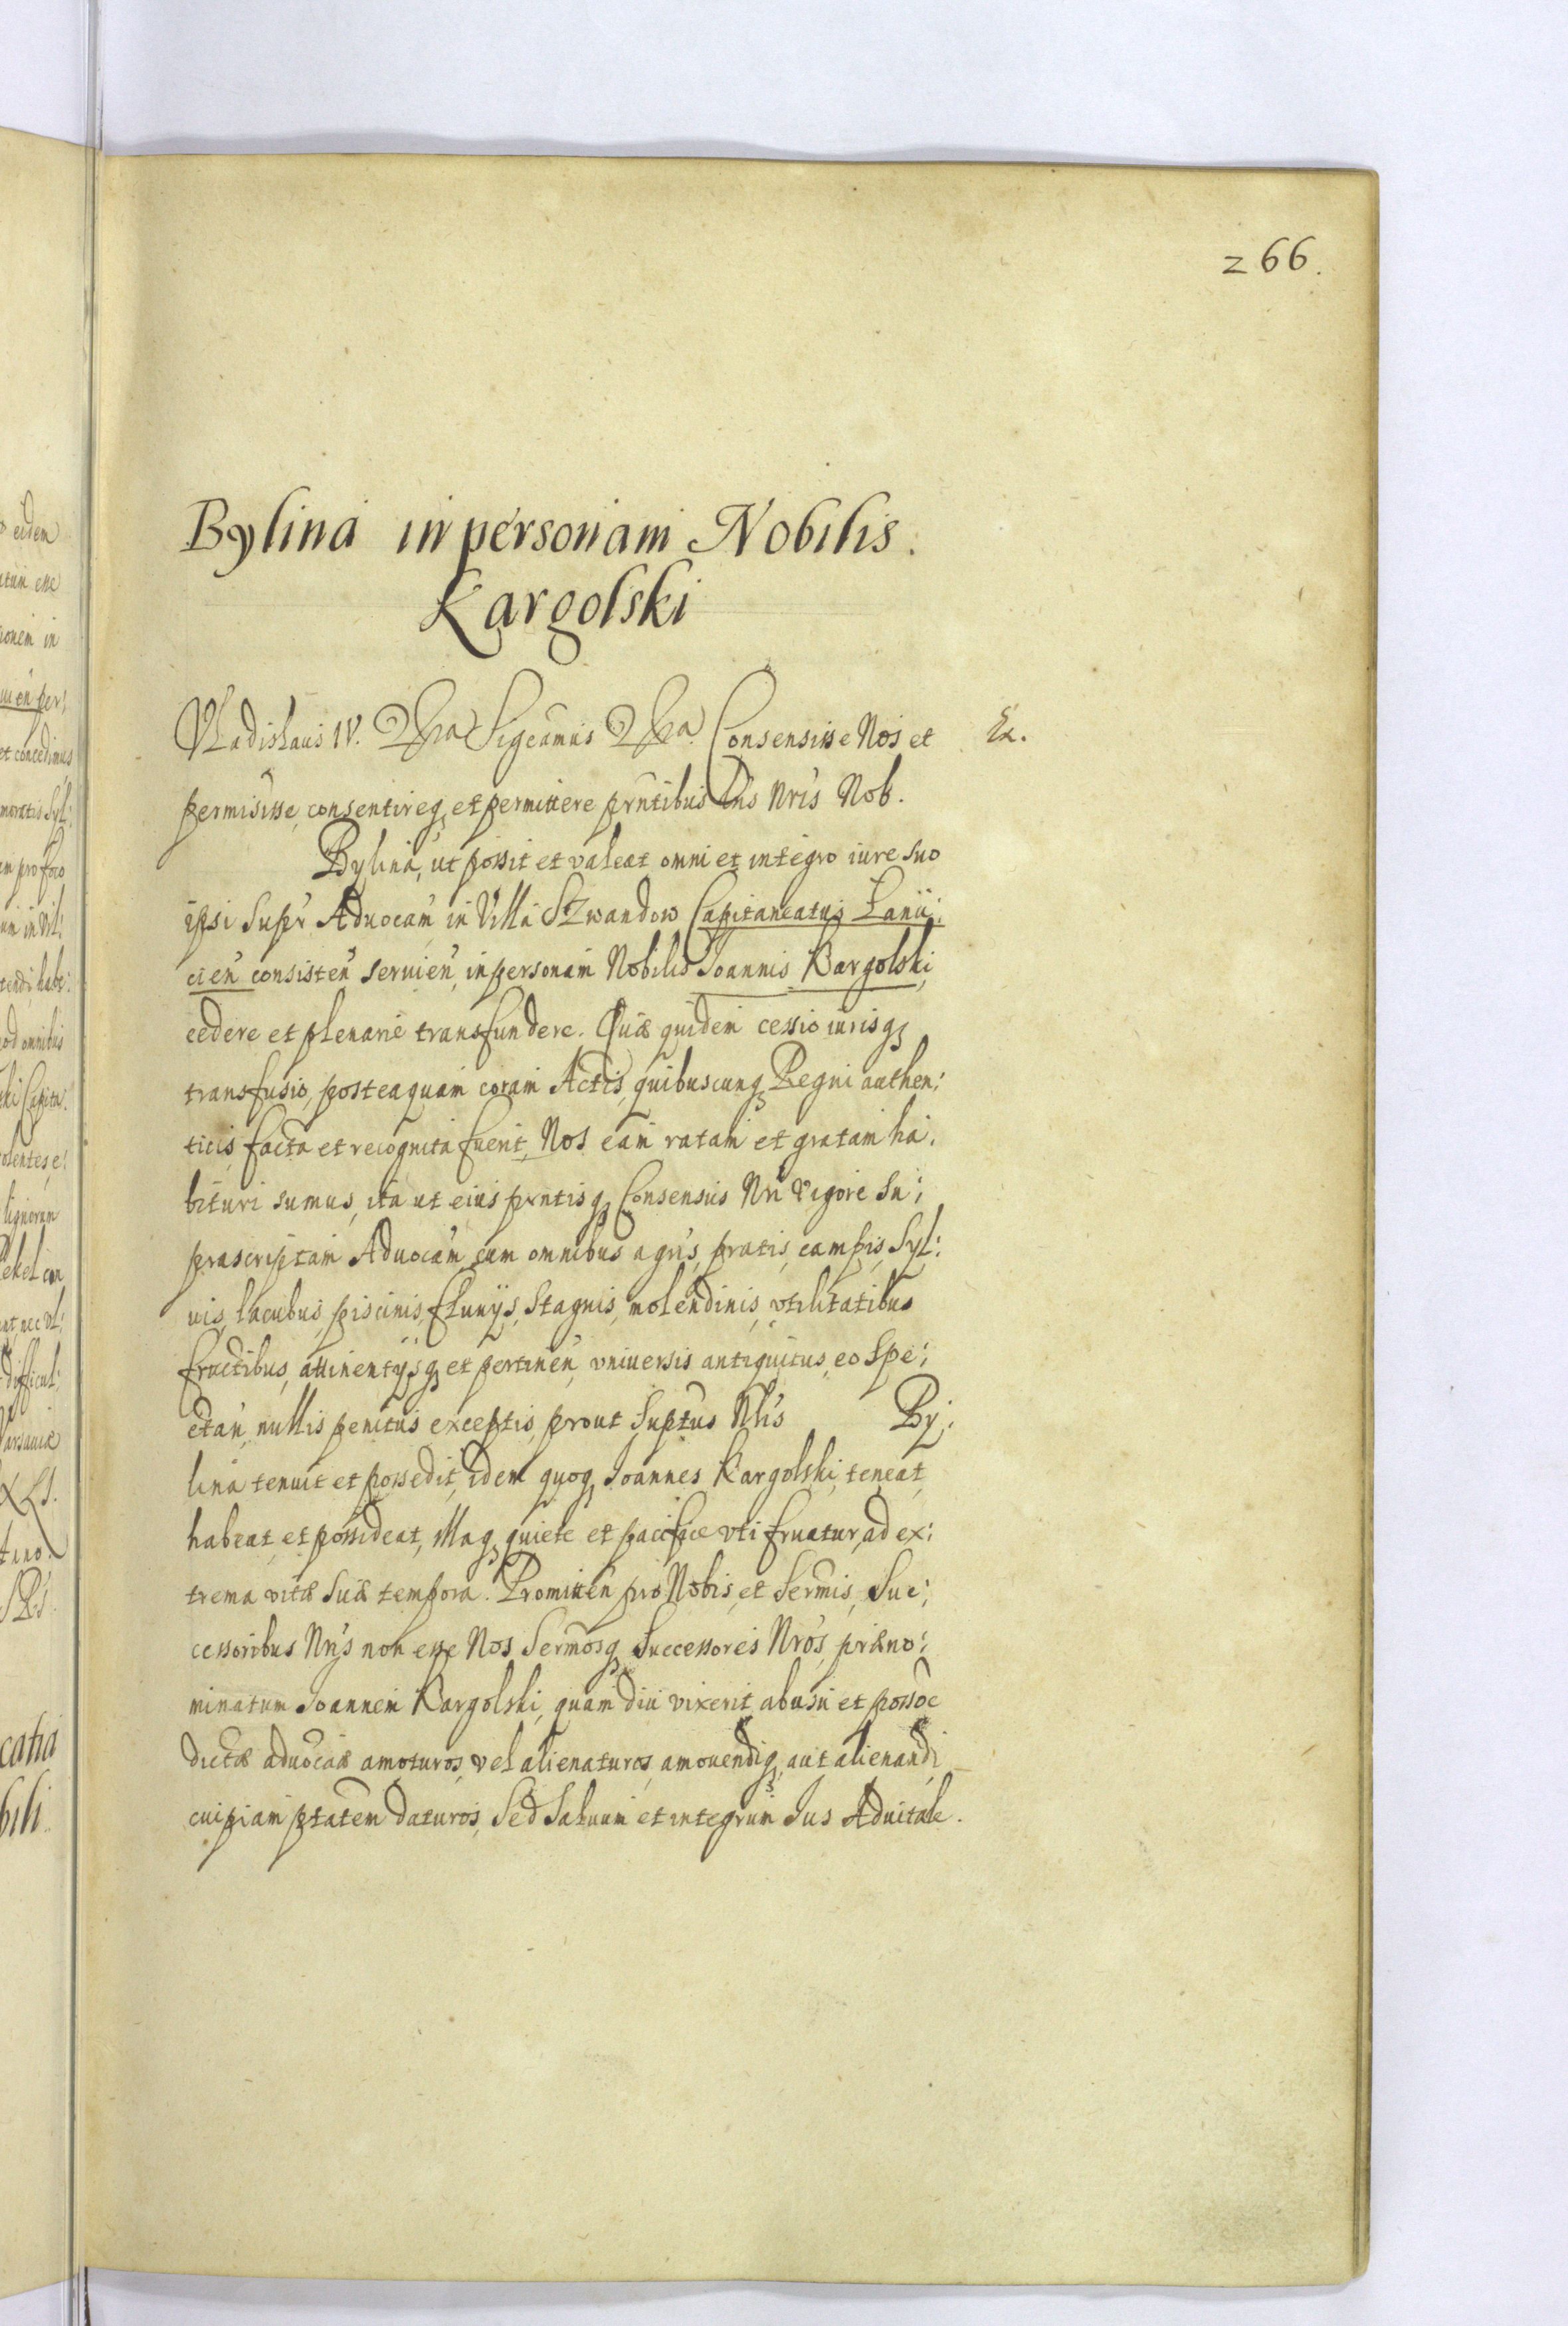 266.
Bylina in personam Nobilis.
Kargolski
Vladislaus IV. Sigcamus Consensisse Nos et Ex.
permisisse, consentireq et permittere prntibus Lris Nris Nob.
Bylina, ut possit et valeat omni et integro iure suo
ipsi Supr Aduocam in Villa Szwandow Capitaneatus Lanii:
cien consisten seruien, in personam Nobilis Joannis Kargolski,
cedere et plenarie transfundere. Quæ quidem cessio iurisq
transfusio, posteaquam coram Actis, quibuscunq Regni authen:
ticis, facta et recognita fuerit, Nos eam ratam et gratam ha:
bituri sumus, ita ut eius prntisq Consensus Nri Vigore Su:
prascriptam Aduocam, cum omnibus agris, pratis, campis, Syl:
uis, lacubus, piscinis, fluuijs, Stagnis, molendinis, vtilitatibus
fructibus, attinentijsq et pertinen, vniuersis antiquitus, eo Spe:
ctan, nullis penitus exceptis, prout Suptus Nlis By:
lina tenuit et possedit, idem quoq Joannes Kargolski, teneat,
habeat, et possideat, Illaq quiete et pacifice vti fruatur, ad ex:
trema vitæ Suæ tempora. Promitten pro Nobis, et Sermis, Suc:
cessoribus Nris non esse Nos, Sermosq Successores Nros, præno:
minatum Joannem Kargolski, quam diu vixerit, ab usu et possoe
dictæ aduocaæ amoturos, vel alienaturos, amouendiq, aut alienandi
cuipiam ptatem daturos, Sed Saluum et integrum Jus Aduitale.